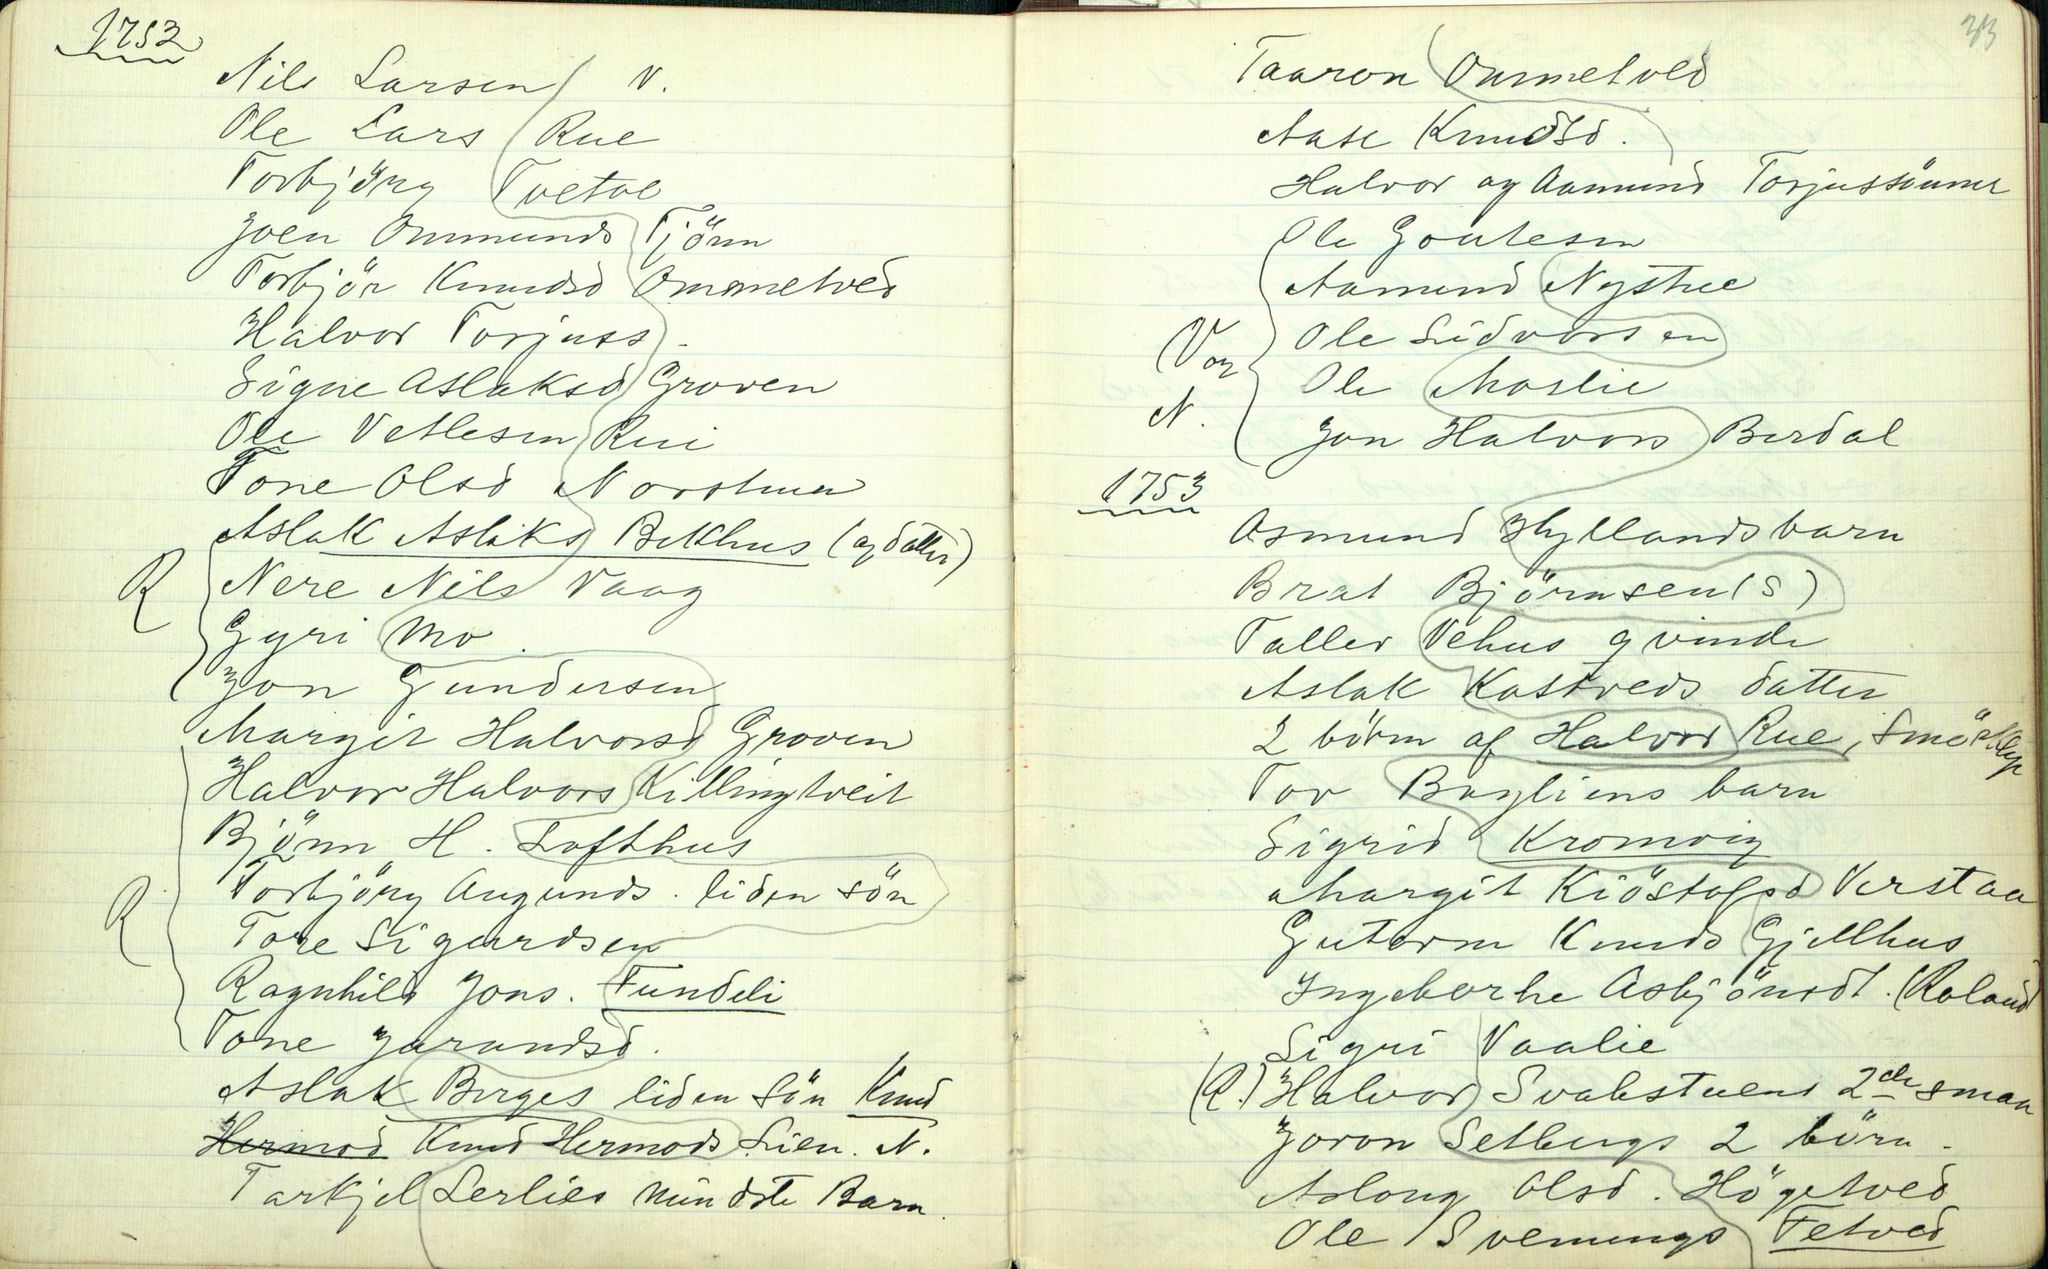 1752
Nils Larsen V.
Ole Lars Rue
Torbjörg Tvetve
Joen Ommunds Tjönn
Torbjör Knudsd Ommetved
Halvor Torjuss.
Signe Aslaksd Groven
Ole Vetlesen Rui
Tone Olsd Norstuen
Aslak Aslaks Bekhus (og datter)
R Nere Nils Vaag
Gyri Mo
Jon Gundersen
Margit Halvorsd Groven
Halvor Halvors Killingtveit
Björn H. Lofthus
Torbjörg Augunds. liden sön
R Tore Sigurdsen
Ragnhild Jons. Fundeli
Tone Jarandsd.
Aslak Berges liden Sön Knud
Hermod Knud Hermods Lien. N.
Tarkjel Lerlies mindste Barn.
33
Taaron Ommetved
Aase Knudsd.
Halvor og Aamund Torjussönner
Ole Goutesen
Aamund Nystue
(V og N. Ole Sidvordsen
Ole Moslie
Jon Halvors Berdal
1753
Asmund Hyllandsbarn
Brat Björnsen (S)
Taller Vehus qvinde
Aslak Kastveds datter
2 börn af Halvor Rue, Smörklep
Tov Bøgliens barn
Sigrid Kromvig
Margit Kiöstolfsd Verstaa
Gutorm Knuds Gjellhus
Ingeborhe Asbjönsdt. (Roland
Sigri Vaalie
(R.) Halvor Svalestuens 2de smaa
Joron Selbergs 2 börn.
Asloug Olsd. Högetved
Ole Svenungs Fetved